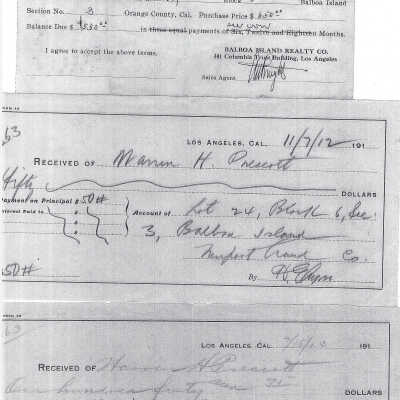 Balboa Island
Section No. 3 Orange County, Cal. Purchase Price $600.00
Balance Due $550.00 in three equal payments of Six, Twelve and Eighteen Months.
I agree to accept the above terms.
BALBOA ISLAND REALTY CO.
Columbia Trust Building, Los Angeles
Sales Agent.
63
LOS ANGELES, CAL. 11/7/12 191
RECEIVED OF Warren H. Prescott
Fifty DOLLARS
Payment on Principal $50#
Interest Paid to
Account of Lot 24, Block 6, Sec.
3, Balboa Island
Newport Co.
50# By
63
LOS ANGELES, CAL. 191
RECEIVED OF Warren H Prescott
One hundred forty DOLLARS